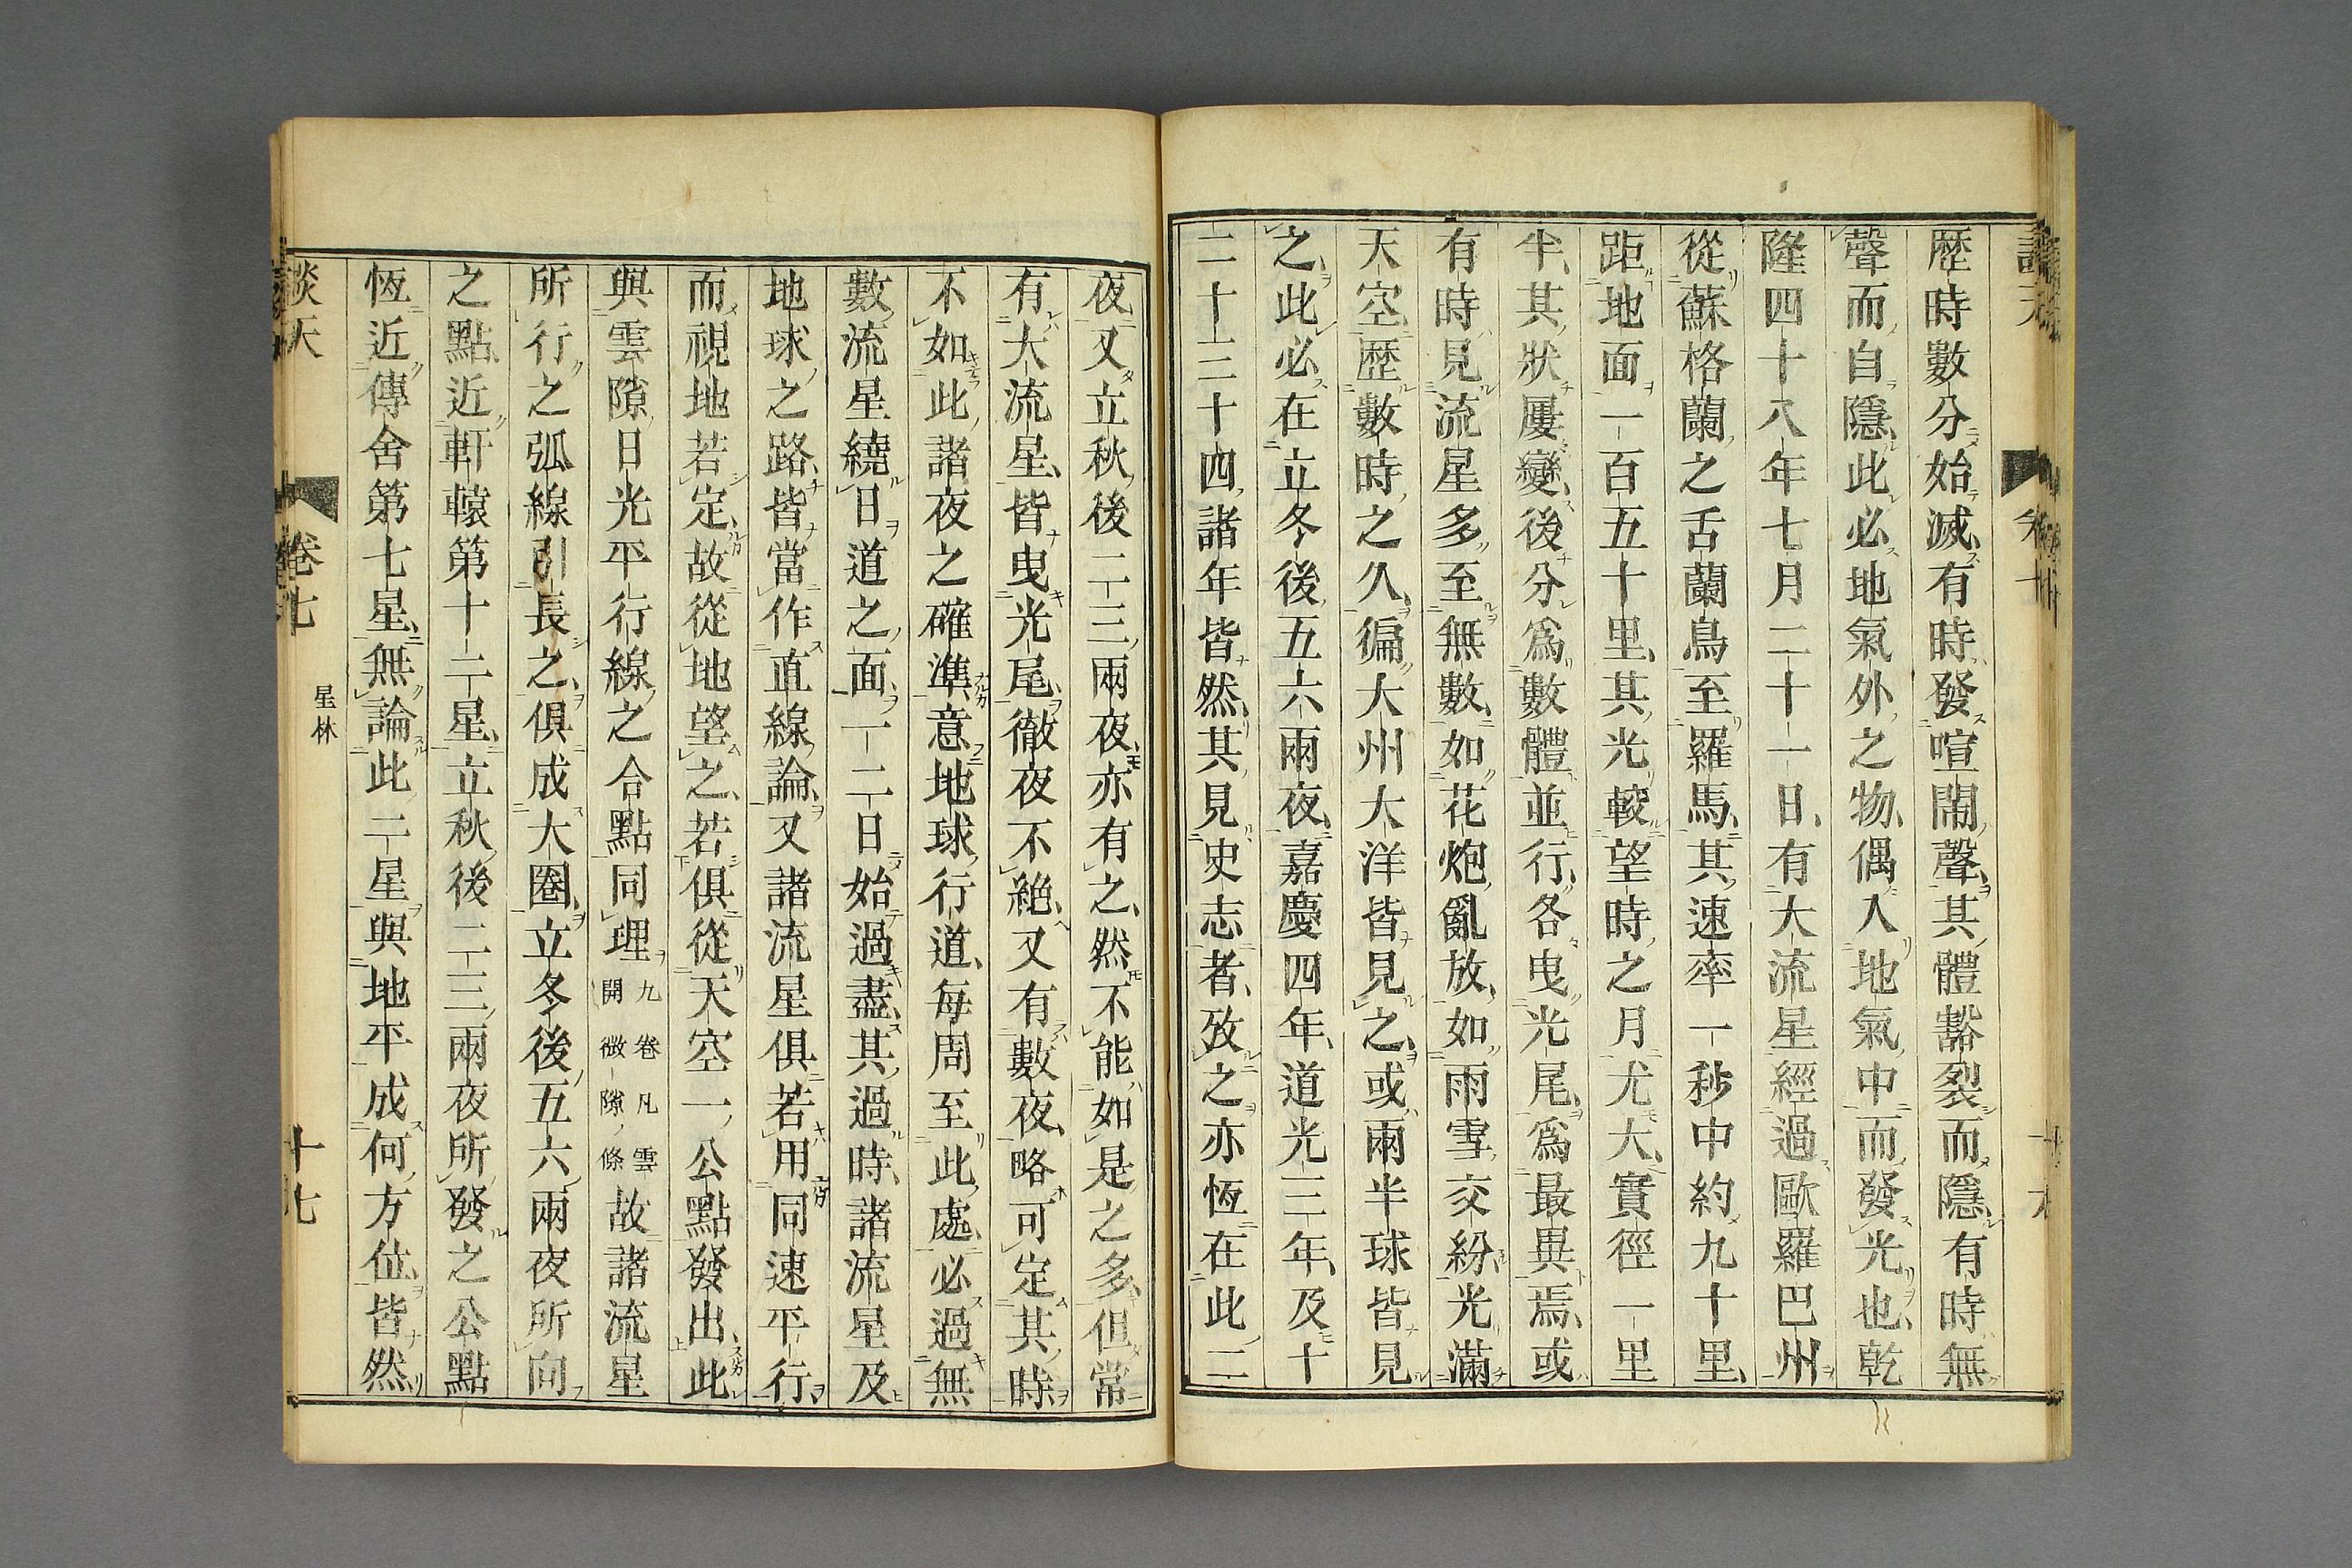 歴時數分始滅有時發喧鬧聲其體豁裂而隱有時無
聲而自隱此必地氣外之物偶入地氣中而發光也乾
隆四十八年七月二十一日有大流星經過歐羅巴州
從蘇格蘭之舌蘭鳥至羅馬其速率一秒中約九十里
距地面一百五十里其光較望時之月尤大實徑一里
半其狀屢變後分爲數體並行各曳光尾爲最異焉或
有時見流星多至無數如花炮亂放如雨雪交紛光滿
天空歷數時之久徧大州大洋皆見之或兩半球皆見
之此必在立冬後五六兩夜嘉慶四年道光三年及十
二十三十四諸年皆然其見史志者攷之亦恆在此二
夜又立秋後二三兩夜亦有之然不能如是之多但常
有大流星皆曳光尾徹夜不絶又有數夜略可定其時
不如此諸夜之確準意地球行道每周至此處必過無
數流星繞日道之面一二日始過盡其過時諸流星及
地球之路皆當作直線論又諸流星俱若用同速平行
而視地若定故從地望之若俱從天空一公點發出此
與雲隙日光平行線之合點同理九卷凡雲開微隙條故諸流星
所行之弧線引長之俱成大圈立冬後五六兩夜所向
之點近軒轅第十二星立秋後二三兩夜所發之公點
恆近傳舍第七星無論此二星與地平成何方位皆然
談天 卷七 星林 十九